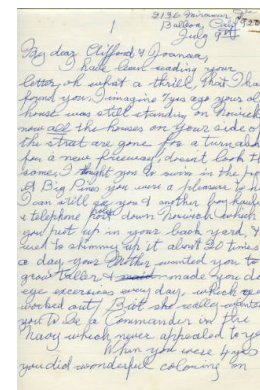 2136 Miramar
Balboa, Calif 920
July 9th
1
My dear Clifford & Joanne,
I have been reading your
letter, oh what a thrill, that I ha
found you. I imagine yrs ago your ol
house was still standing on Norwich
now all the houses on your side of
the street are gone for a turna
for a new freeway, doesnt look th
same. I taught you to swim in the po
at Big Pines you were a pleasure to
I can still see you & another boy haulin
a telephone post down Norwich which
you put up in your back yard, &
used to shimmy up it about 20 times
a day your Mother wanted you to
grow taller & made you do
eye excersises every day, which
worked out! But she really wanted
you to be a Commander in the
Navy which never appealed to yo
When you were 4 yrs
you did wonderful coloring on